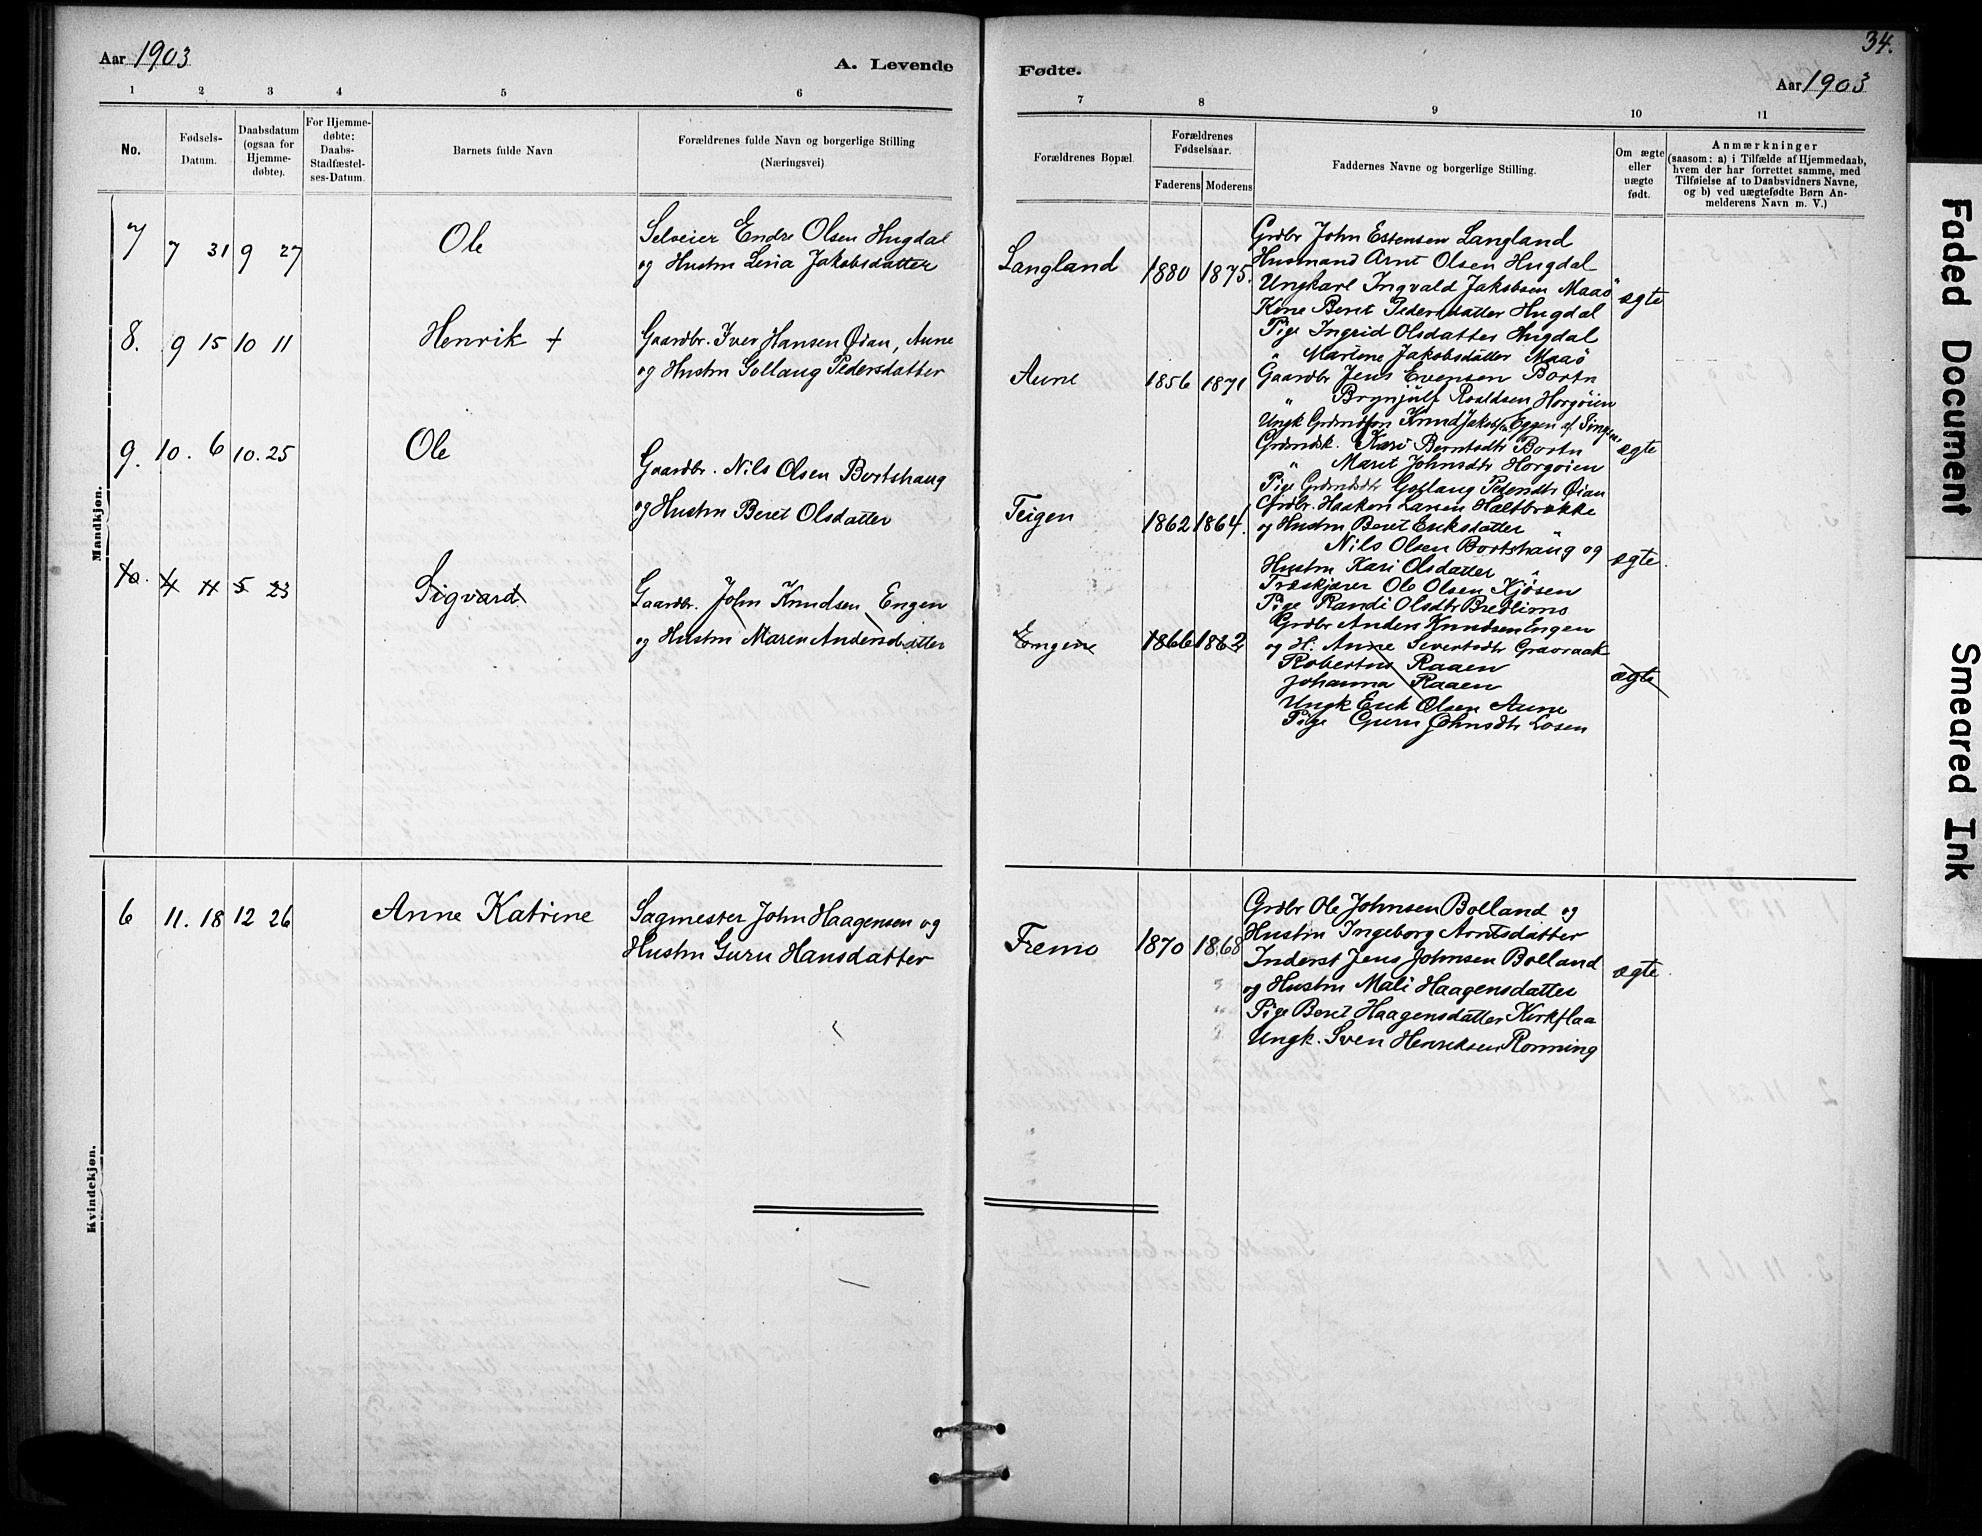 Aar 1903
A. Levende
1 2 3 4 5 6
No.
Fødsels-
Datum.
Daabsdatum
(ogsaa for
Hjemme-
døbte).
For Hjemme-
døbte:
Daabs-
Stadfæstel-
ses-Datum.
Barnets fulde Navn
Forældrenes fulde Navn og borgerlige Stilling
(Næringsvei)
Mandkjøn.
7 7 31 9 27 Ole
Selveier Endre Olsen Hugdal
og Hustru Lina Jakobsdatter
8. 9 15 10 11 Henrik +
Gaardbr. Iver Hansen Øian, Aune
og Hustru Gollaug Pedersdatter
9. 10. 6 10. 25 Ole
Gaardbr. Nils Olsen Bortshaug
og Hustru Beret Olsdatter
10. 4 11 5 23 Sigvard
Gaardbr. John Knudsen Engen
og Hustru Maren Andersdatter
Kvindekjøn.
6 11. 18 12 26 Anne Katrine
Sagmester John Haagensen og
Hustru Guru Hansdatter
34.
Fødte.
Aar 1903
7 8 9 10 11
Forældrenes Bopæl.
Forældrenes
Fødselsaar.
Faderens Moderens
Faddernes Navne og borgerlige Stilling.
Om ægte
eller
uægte
født.
Anmærkninger
(saasom: a) i Tilfælde af Hjemmedaab,
hvem der har forrettet samme, med
Tilføielse af to Daabsvidners Navne,
og b) ved uægtefødte Børn An-
melderens Navn m. V.)
Langland 1880 1875.
Grdbr John Estensen Langland
Husmand Arnt Olsen Hugdal
Ungkarl Ingvald Jakobsen Maaö
Kone Beret Pedersdatter Hugdal
Pige Ingrid Olsdatter Hugdal
" Martine Jakobsdatter Maaö
ægte
Aune 1856 1871
Gaardbr Jens Evensen Bortn
" Brynjulf Roaldsen Horgöien
Ungk Grdmdsøn Knud Jakobsen Eggen af
Grdmdsk. Kari Berntsdtr Bortn
" Marit Johnsdtr Horgöien
Pige Gollaug Pedersdtr Øian
ægte
Teigen 1862 1864.
Grdbr. Haakon Larsen Haltbrække
og Hustru Beret Eriksdatter
Nils Olsen Bortshaug og
Hustru Kari Olsdatter "
Træskjærer Ole Olsen Kjösen
Pige Randi Olsdtr Bredlimo
ægte.
Engen 1866 1862
Grdbr Anders Knudsen Engen
og H. Anne Sivertsdtr Gravraak
Robertus Raaen
Johanna Raaen
Ungk Erik Olsen Aune
Pige Guru Johnsdtr Losen
ægte
Fremo 1870 1868
Grdbr Ole Johnsen Bolland og
Hustru Ingeborg Arntsdatter
Inderst Jens Johnsen Bolland
og Hustru Mali Haagensdatter
Pige Beret Haagensdatter Kirkflaa
Ungk. Sven Henriksen Rönning
ægte.
Faded Document
Smeared Ink